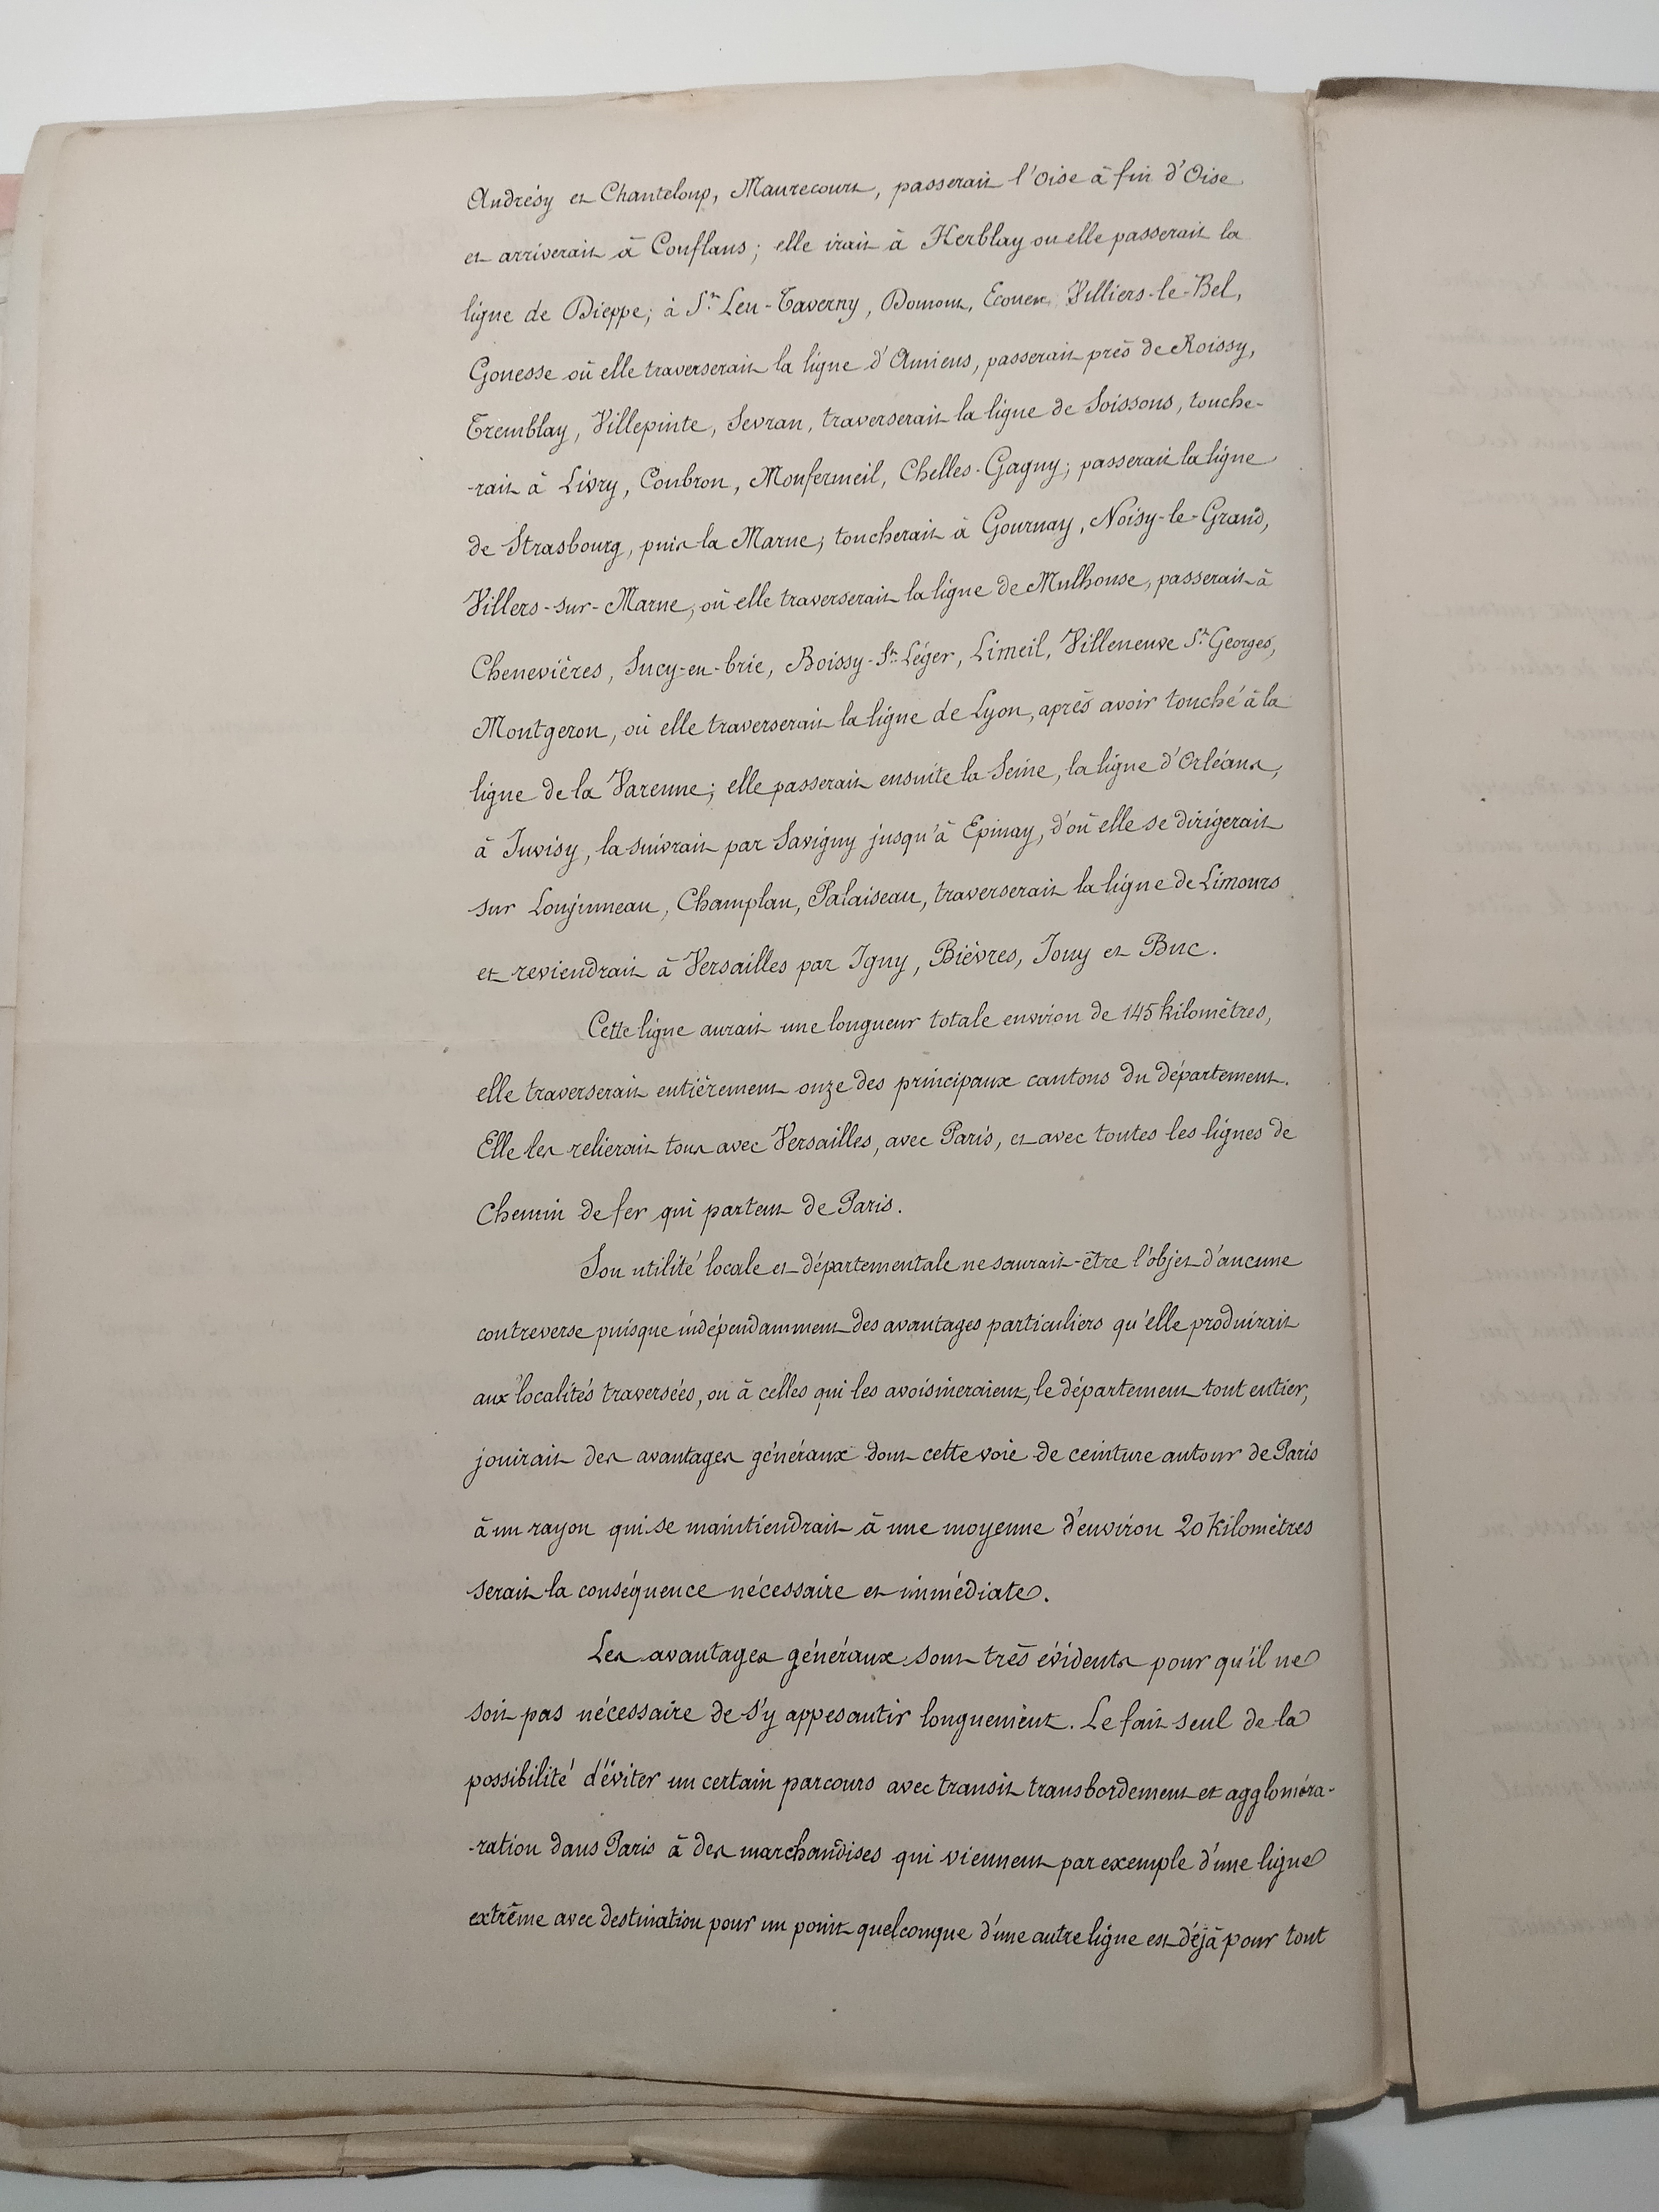 Andrésy et Chanteloup, Maurecourt, passerait l'Oise à fin d'Oise
et arriverait à Conflans; elle irait à Herblay ou elle passerait la
ligne de Dieppe; à St Leu-Taverny, Domont, Ecouen Villiers-le-Bel,
Gonesse où elle traverserait la ligne d'Amiens, passerait près de Roissy,
Tremblay, Villepinte, Sevran, traverserait la ligne de Soissons, touche-
-rait à Livry, Coubron, Monfermeil, Chelles-Gagny; passerait la ligne
de Strasbourg, puis la Marne; toucherait à Gournay, Noisy-le-Grand,
Villers-sur-Marne, où elle traverserait la ligne de Mulhouse, passerait à
Chenevières, Sucy-en-brie, Boissy-St Léger, Limeil, Villeneuve St Georges,
Montgeron, où elle traverserait la ligne de Lyon, après avoir touché à la
ligne de la Varenne; elle passerait ensuite la Seine, la ligne d'Orléans,
à Juvisy, la suivrait par Savigny jusqu'à Epinay, d'où elle se dirigerait
sur Lonjumeau, Champlan, Palaiseau, traverserait la ligne de Limours
et reviendrait à Versailles par Igny, Bièvres, Jouy et Buc.
Cette ligne aurait une longueur totale environ de 145 kilomètres,
elle traverserait entièrement onze des principaux cantons du département.
Elle les relierait tous avec Versailles, avec Paris, et avec toutes les lignes de
chemin de fer qui partent de Paris.
Son utilité locale et départementale ne saurait-être l'objet d'aucune
contreverse puisque indépendamment des avantages particuliers qu'elle produirait
aux localités traversées, ou à celles qui les avoisineraient, le département tout entier,
jouirait des avantages généraux dont cette voie de ceinture autour de Paris
à un rayon qui se maintiendrait à une moyenne d'environ 20 kilomètres
serait la conséquence nécessaire et immédiate.
Les avantages généraux sont très évidents pour qu'il ne
soit pas nécessaire de s'y appesautir longuement. Le fait seul de la
possibilité d'éviter un certain parcours avec transit transbordement et aggloméra-
-ration dans Paris à des marchandises qui viennent par exemple d'une ligne
extrême avec destination pour un point quelconque d'une autre ligne est déjà pour tout